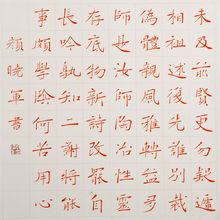 未及前賢更勿疑遞
相祖述復先誰別裁
偽體親風雅轉益多
師是汝師陶冶性靈
存底物新詩改罷自
長吟孰知二謝將能
事頗學陰何苦用心
顏曉軍書